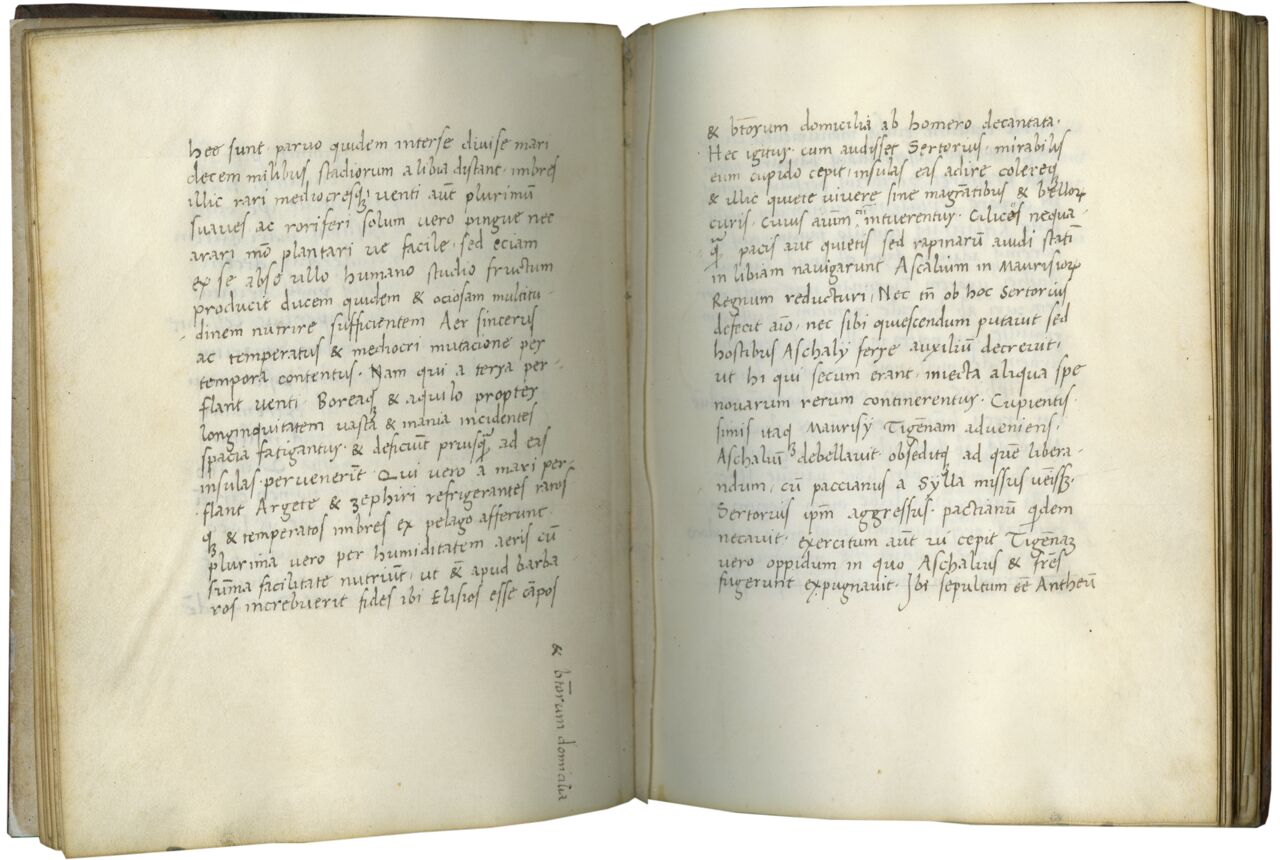 hee sunt· paruo quidem interse diuise mari
decem milibus stadiorum a libia distant· imbres
illic rari mediocresqꝫ venti aut̄ plurimū
suaues ac roriferi solum vero pingue nec
arari mō plantari ue facile· sed eciam
ex se absqꝫ ullo humano studio fructum
producit ducem quidem & ociosam multitu-
dinem nutrire sufficientem Aer sincerus
ac temperatus & mediocri mutacione per
tempora contentus· Nam qui a terra per-
flant venti· Boreasqꝫ & aquilo propter
longinquitatem uasta & inania incidentes
spacia fatigantur· & deficiūt priusqᷓ ad eas
insulas peruenerīt· Qui vero a mari per-
flant Argete & zephiri refrigerantes raros
qꝫ & temperatos imbres ex pelago afferunt·
plurima vero per humiditatem aeris cū
sūma facilitate nutriūt· ut & apud barba
ros increbuerit fides ibi Elisios esse cāpos
& bt̄orum domicilia
& bt̄orum domicilia ab homero decantata·
Hec igitur cum audisset Sertorius· mirabilis
eum cupido cepit· insulas eas adire colereqꝫ
& illic quiete viuere sine magrātibus & bellorꝝ
curis· Cuius aīum intuerentur· Cilices nequa-
qᷓ pacis aut quietis sed rapinarū auidi statī
in libiam nauigarunt Ascalium in Maurisiorꝝ
Regnum reducturi· Nec tn̄ ob hoc Sertorius
defecit aīo· nec sibi quiescendum putauit sed
hostibus Aschalÿ ferre auxiliū decreuit·
ut hi qui secum erant· iniecta aliqua spe
nouarum rerum continerentur· Cupientis-
simis itaqꝫ Maurisÿ Tigēnam adueniens·
Aschaliū debellauit obseditqꝫ ad quē libera-
ndum· cū paccianus a Sylla missus uēissꝫ·
Sertorius ipm̄ aggressus· pactianū qidem
necauit· exercitum aut̄ cepit Tigēnaꝫ
vero oppidum in quo Aschalius & fr̄es
fugerunt expugnauit· Ibi sepultum eē Antheū